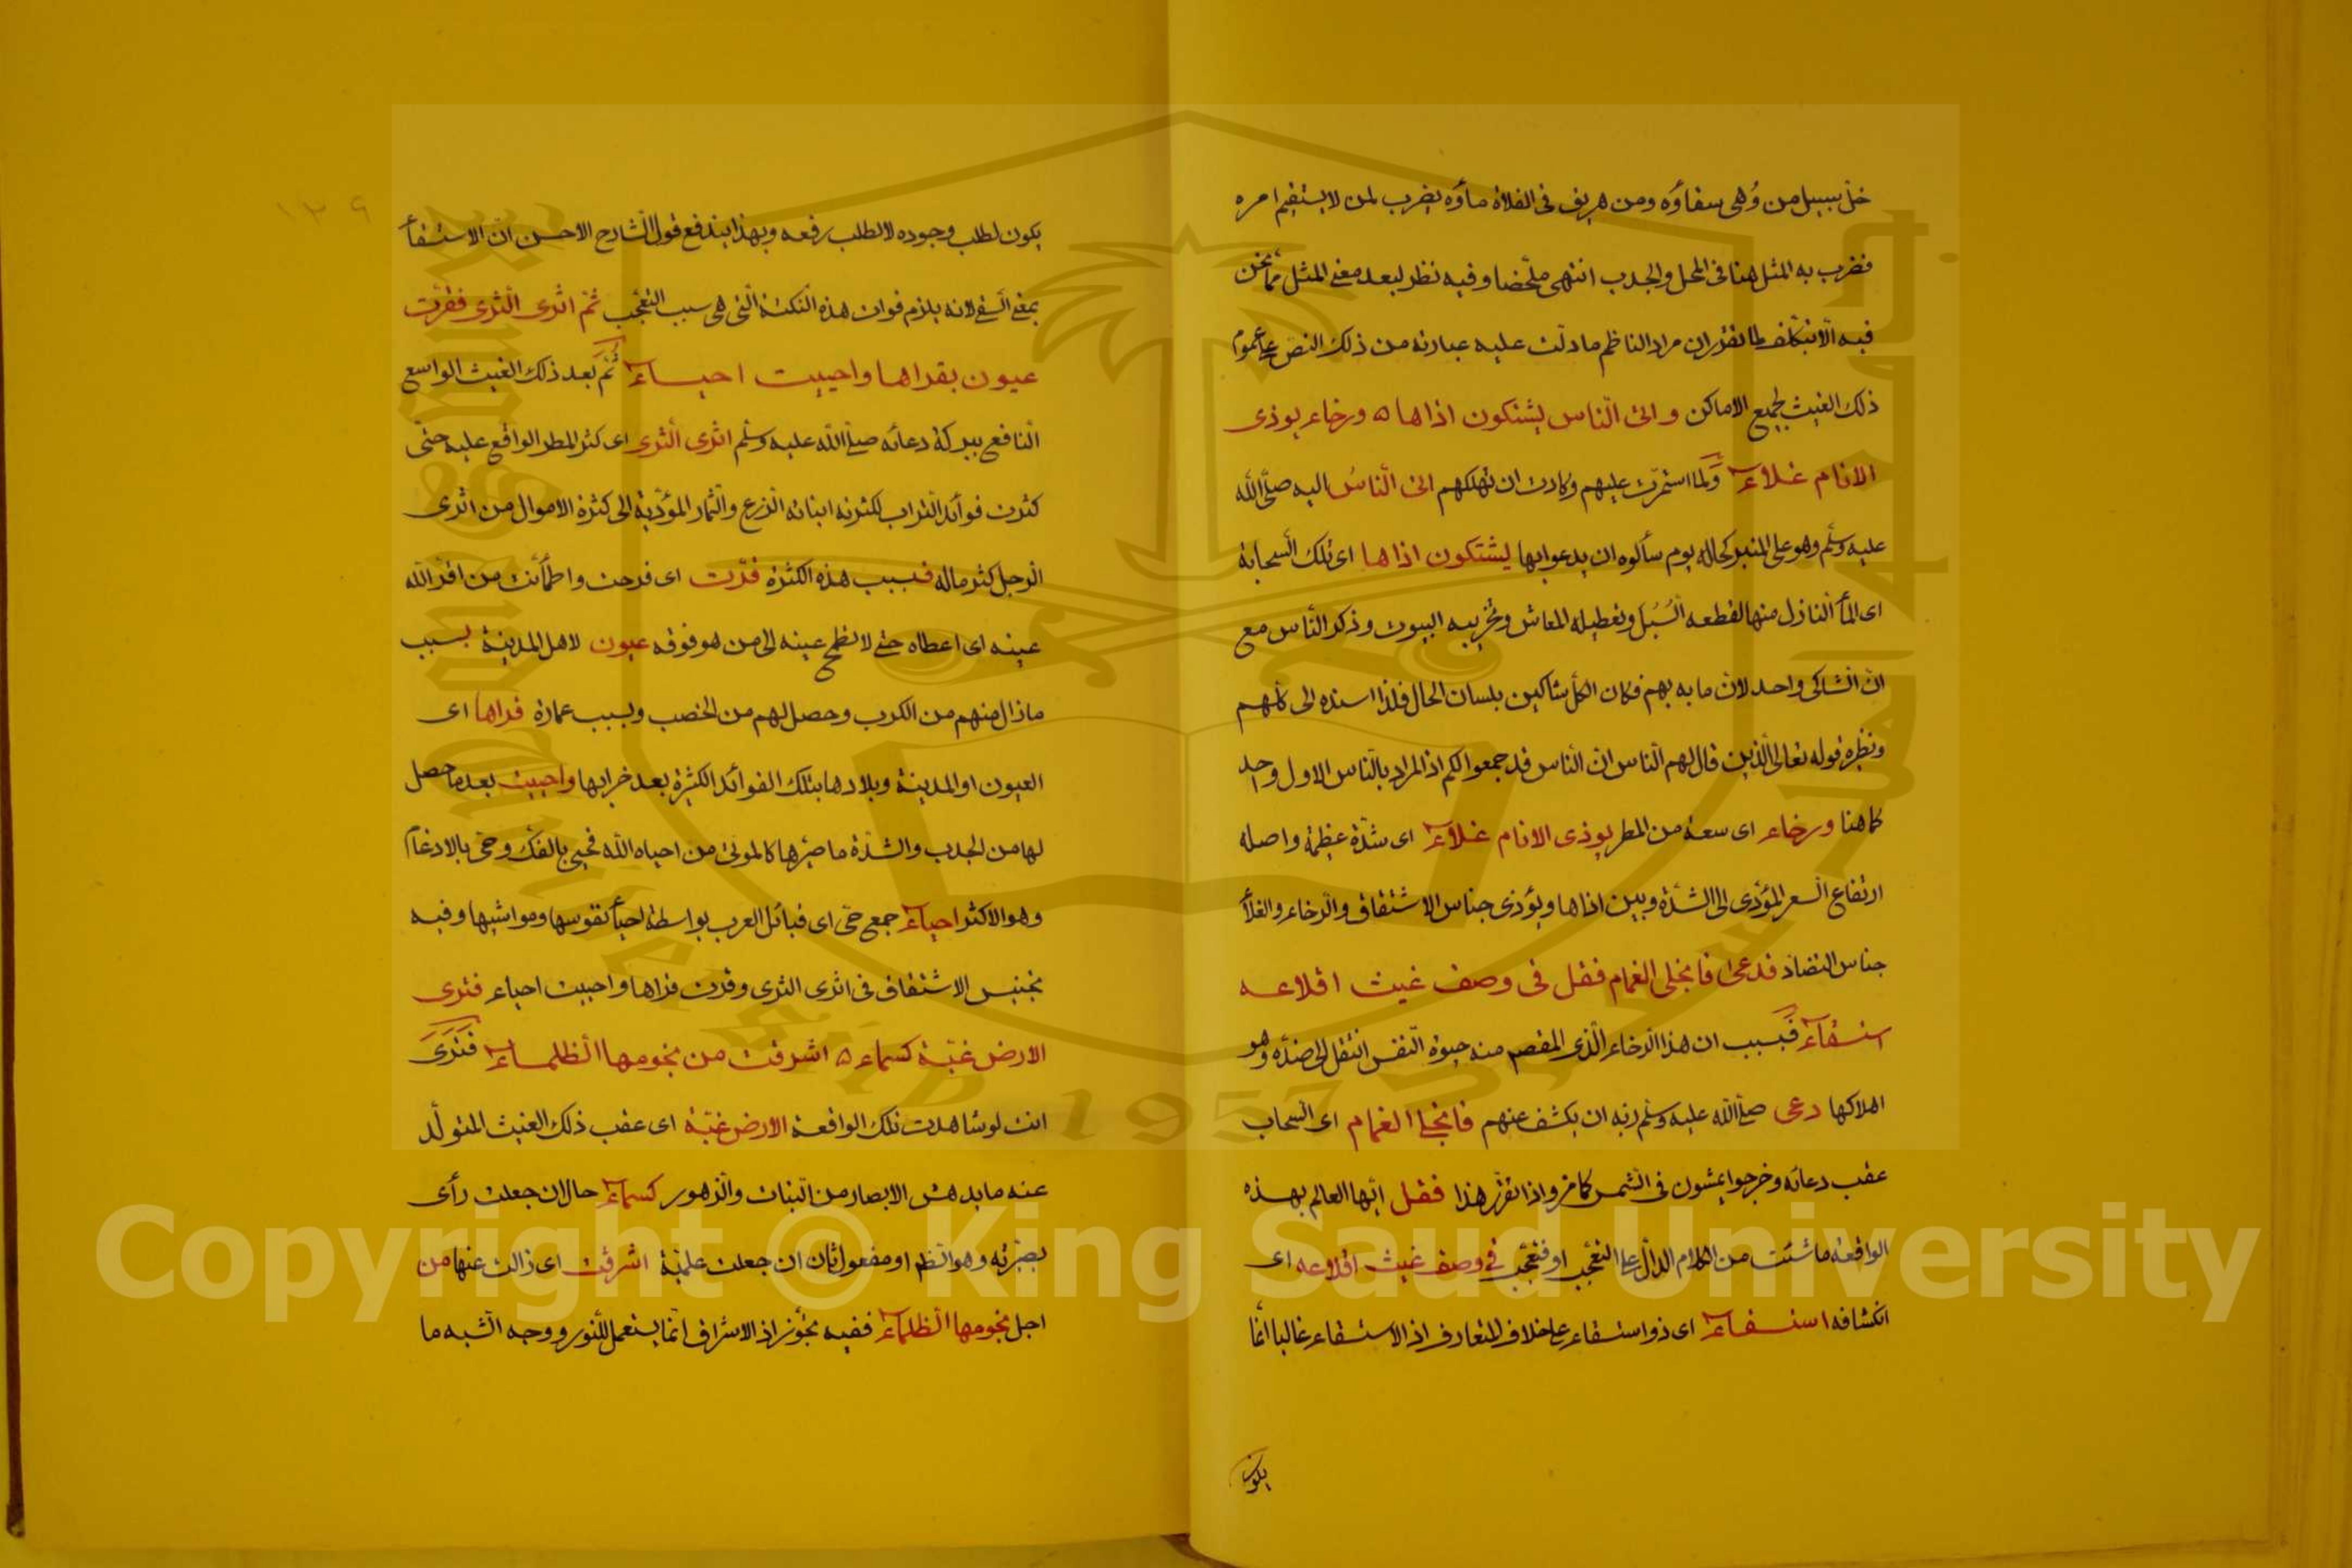 خلّ سبيل من وُهى سقاؤه ومن هريق فى الفلاة ماؤه يضرب لمن لا يستقيم امره
فضرب به المثل هنا فى المحل والجدب انتهى ملخصا وفيه نظر لبعد معنى المثل مما نحن
فيه الّا بتكلف لما تقرر ان مراد الناظم ما دلّت عليه عبارته من ذلك النص على عموم
ذلك الغيث لجميع الاماكن واتى النّاس يشتكون اذاها ٥ ورخاء يوذى
الانام غلاء ولما استمرّت عليهم وكادت ان تهلكهم اتى النّاسُ اليه صلّى الله
عليه وسلّم وهو على المنبر كحاله يوم سألوه ان يدعو بها ليشتكون اذاها اى تلك السحابة
اى الماء النازل منها لقطعه السُبُل وتعطيله المعاش وتخريبه البيوت وذكر النّاس مع
انّ الشاكى واحد لانّ ما به بهم فكان الكل شاكين بلسان الحال فلذا اسنده الى كلهم
ونظيره قوله تعالى الّذين قال لهم النّاس انّ النّاس قد جمعوا لكم اذ المراد بالنّاس الاول واحد
كما هنا ورخاء اى سعة من المطر يوذى الانام غلاء اى شدّة عظيمة واصله
ارتفاع السعر المؤدّى الى الشدّة وبين اذاها ويؤذى جناس الاشتقاق والرخاء والغلاء
جناس التضاد فدعى فانجلى الغمام فقل فى وصف غيث اقلاعه
استسقاء فبسبب ان هذا الرخاء الّذى المقصد منه حيوة النّفس انتقل الى ضدّه وهو
اهلاكها دعى صلّى الله عليه وسلّم ربّه ان يكشف عنهم فانجلى الغمام اى السحاب
عقب دعائه وخرجوا يمشون فى الشّمس كما مرّ واذا تقرّر هذا فقل ايّها العالم بهذه
الواقعة ما شئت من الكلام الدالّ على التعجّب او فتعجّب فى وصف غيث اقلاعه اى
انكشافه استسقاء اى ذو استسقاء على خلاف المتعارف اذ الاستسقاء غالبا انّما
يكون
١٢٩
يكون لطلب وجوده لا لطلب رفعه وبهذا يندفع قول الشارح الاحسن انّ الاستسقاء
بمعنى السقى لانه يلزم فوات هذه النكتة الّتى هى سبب التعجّب ثمّ اثرى الثّرى فقرّت
عيون بقراها واحييت احياء ثُمّ بَعد ذلك الغيث الواسع
النافع ببركة دعائه صلّى الله عليه وسلّم اثرى الثّرى اى كثر المطر الواقع عليه حتّى
كثرت فوائد التراب لكثرة انباته الزرع والثمار المؤدّية الى كثرة الاموال من اثرى
الرجل كثر ماله فبسبب هذه الكثرة قرّت اى فرحت واطمأنت من اقرّ الله
عينه اى اعطاه حتى لا تطمح عينه الى من هو فوقه عيون لاهل المدينة بسبب
ما زال منهم من الكرب وحصل لهم من الخصب وبسبب عمارة قراها اى
العيون او المدينة وبلادها بتلك الفوائد الكثيرة بعد خرابها واحييت بعد ما حصل
لها من الجدب والشدّة ما صيّرها كالموتى من احياه الله فحيى بالفكّ وحىّ بالادغام
وهو الاكثر احياء جمع حىّ اى قبائل العرب بواسطة احياء نفوسها ومواشيها وفيه
تجنيس الاشتقاق فى اثرى الثرى وقرّت قراها واحييت احياء فترى
الارض غبّه كسماء ٥ اشرقت من نجومها الظلماء فَتَرَى
انت لو شاهدت تلك الواقعة الارض غبّه اى عقب ذلك الغيث المتولّد
عنه ما يدهش الابصار من النبات والزهور كسماء حال ان جعلت رأى
بصريّه وهو الظم او مفعول ثان ان جعلت علميّة اشرقت اى زالت عنها من
اجل نجومها الظلماء ففيه تجوّز اذ الاشراق انّما يستعمل للنور ووجه الشبه ما